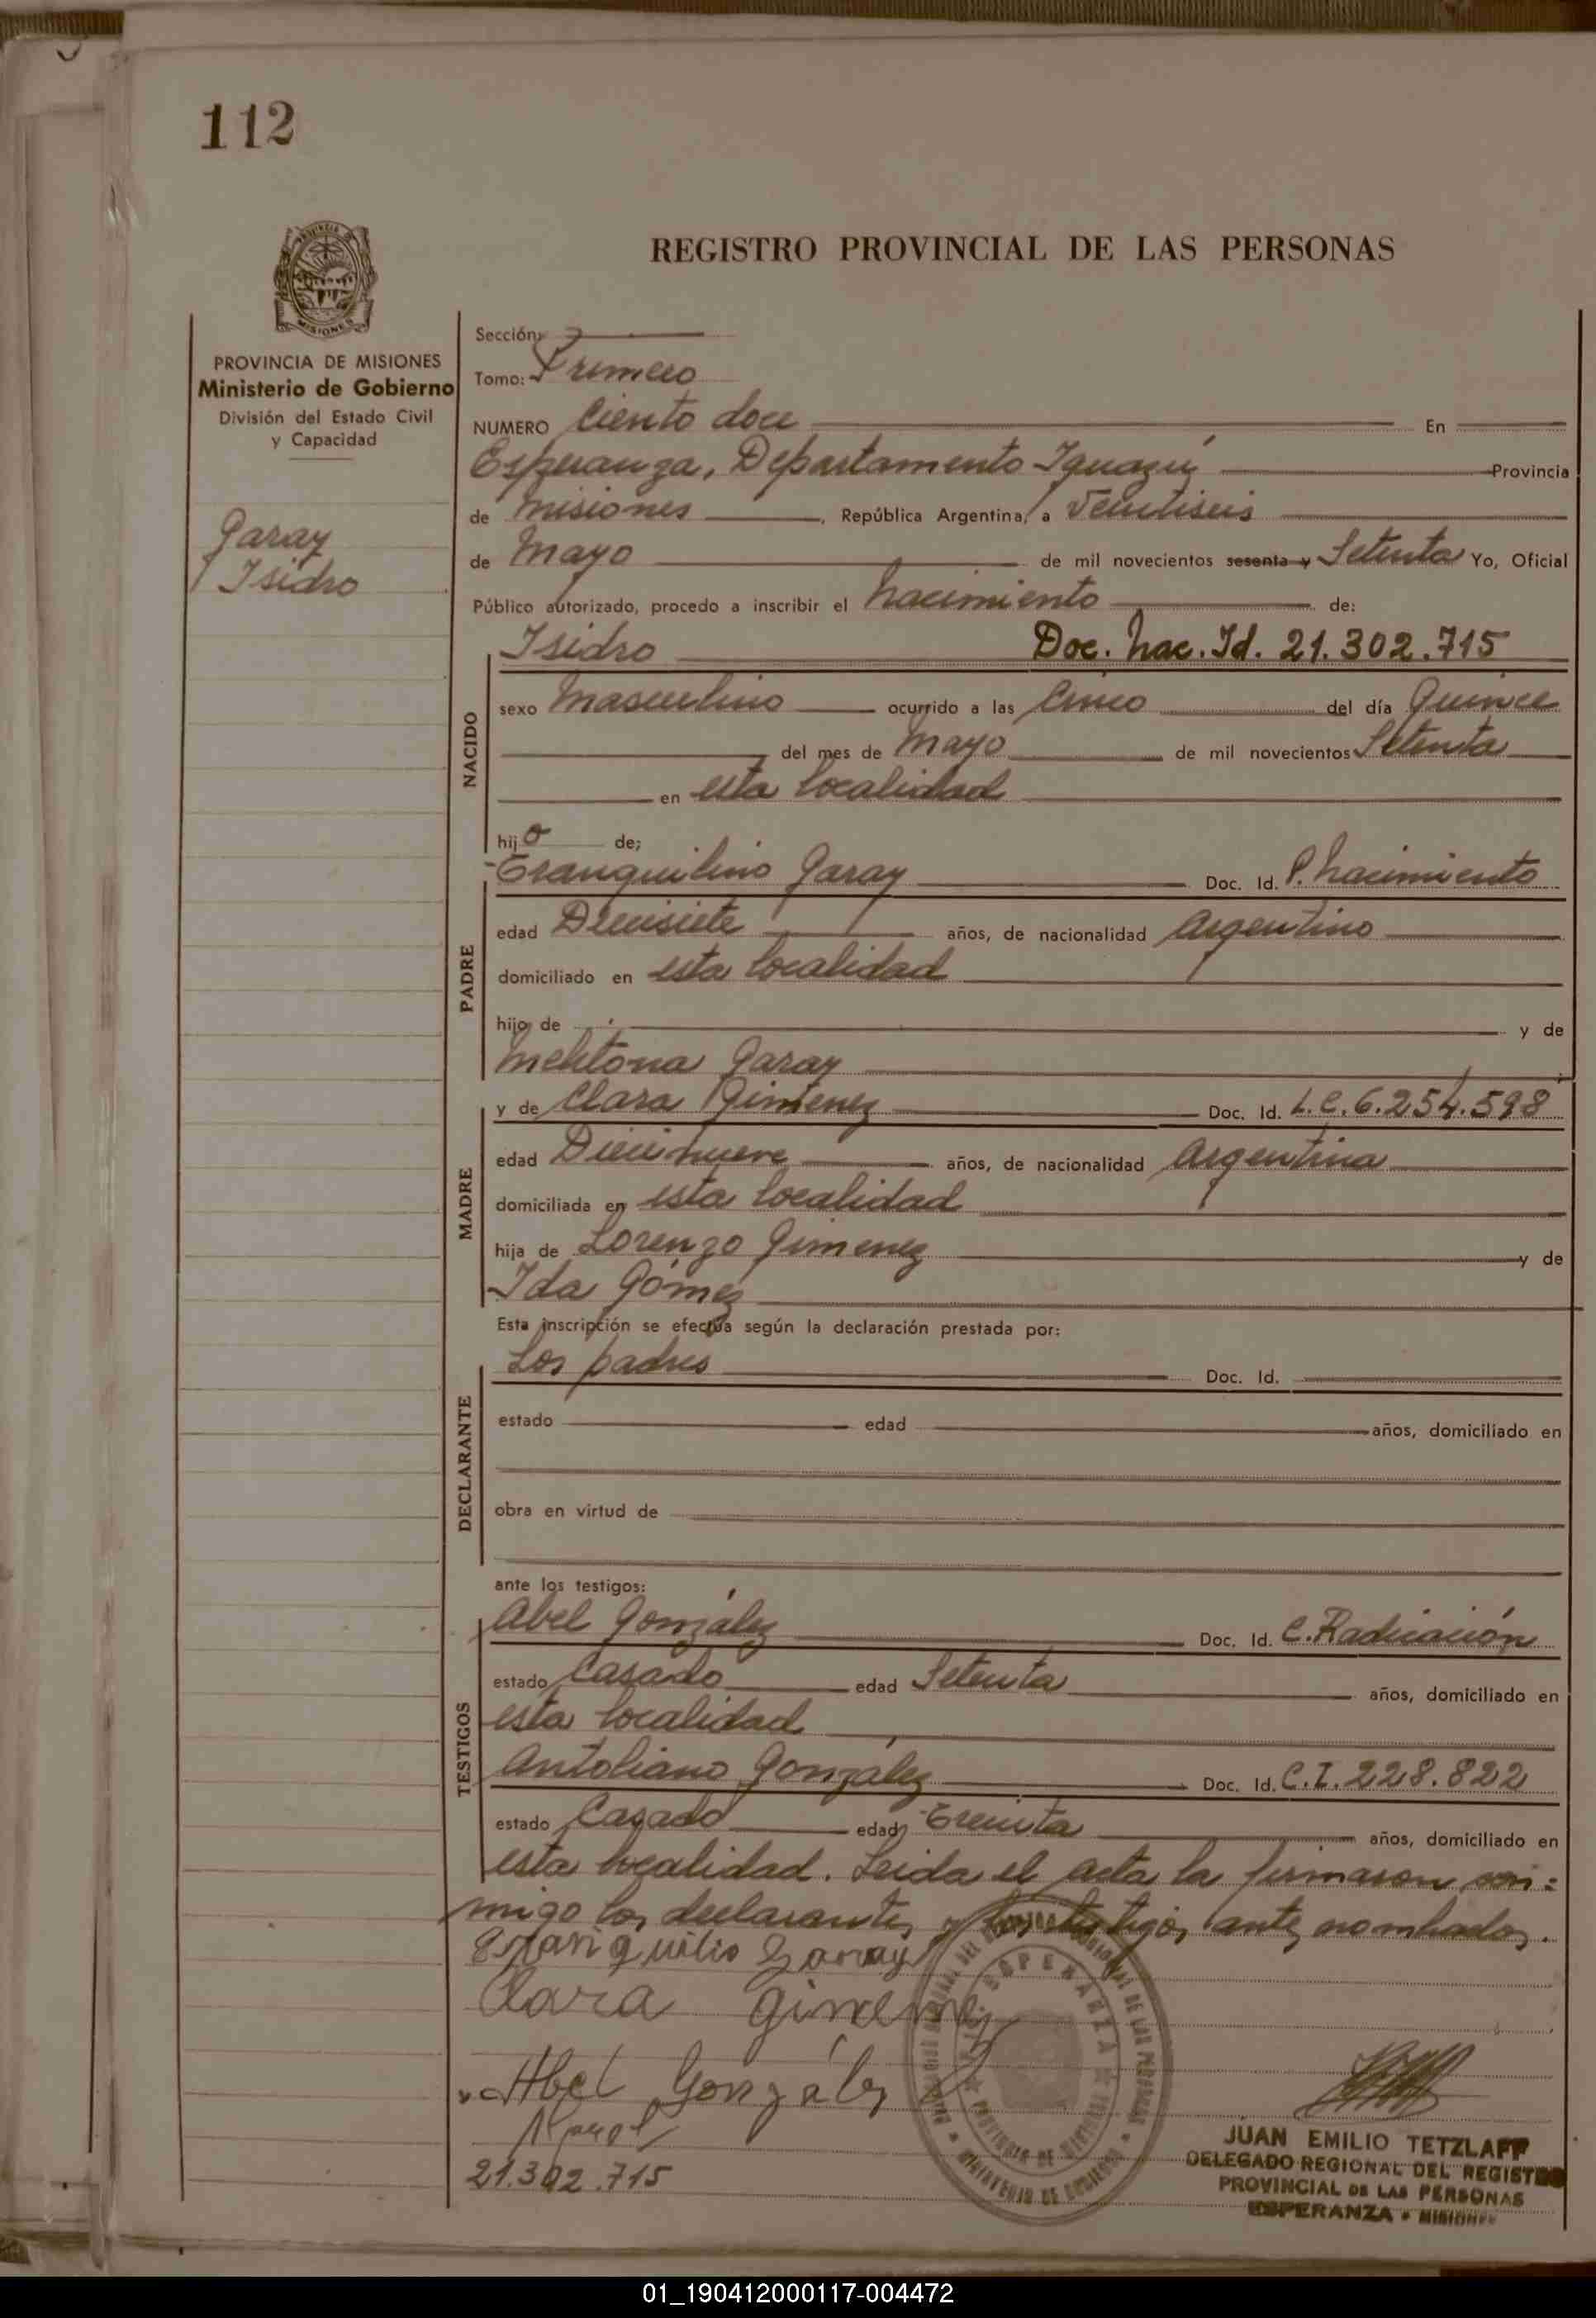 112
REGISTRO PROVINCIAL DE LAS PERSONAS
MISIONES
PROVINCIA DE MISIONES
Ministerio de Gobierno
División del Estado Civil
y Capacidad
Garay
Isidro
Sección:
Tomo: Primero
NUMERO Ciento doce En
Esperanza, Departamento Iguazú Provincia
de Misiones, República Argentina, a Veintiseis
de Mayo de mil novecientos sesenta y Setenta Yo, Oficial
Público autorizado, procedo a inscribir el nacimiento de:
Isidro Doc. Nac. Id. 21.302.715
NACIDO
sexo Masculino ocurrido a las Cinco del día Quince
del mes de Mayo de mil novecientos Setenta
en esta localidad
hijo de;
Tranquilino Garay Doc. Id. P. Nacimiento
PADRE
edad Diecisiete años, de nacionalidad Argentino
domiciliado en esta localidad
hijo de y de
Melitona Garay
y de Clara Gimenez Doc. Id. L.C. 6.254.598
MADRE
edad Diecinueve años, de nacionalidad Argentina
domiciliada en esta localidad
hija de Lorenzo Gimenez y de
Ida Gómez
Esta inscripción se efectúa según la declaración prestada por:
Los padres Doc. Id.
DECLARANTE
estado edad años, domiciliado en
obra en virtud de
ante los testigos:
Abel González Doc. Id. C. Radicación
TESTIGOS
estado Casado edad Setenta años, domiciliado en
esta localidad
Antoliano González Doc. Id. C.I. 228.822
estado Casado edad Treinta años, domiciliado en
esta localidad. Leida el acta la firmaron con=
migo los declarantes y los testigos antes nombrados.
Tranquilio Garay
Clara Gimenez
Abel González
21.302.715
ESPERANZA
PROVINCIA DE MISIONES
MINISTERIO DE GOBIERNO
JUAN EMILIO TETZLAFF
DELEGADO REGIONAL DEL REGISTRO
PROVINCIAL DE LAS PERSONAS
ESPERANZA - MISIONES
01_190412000117-004472